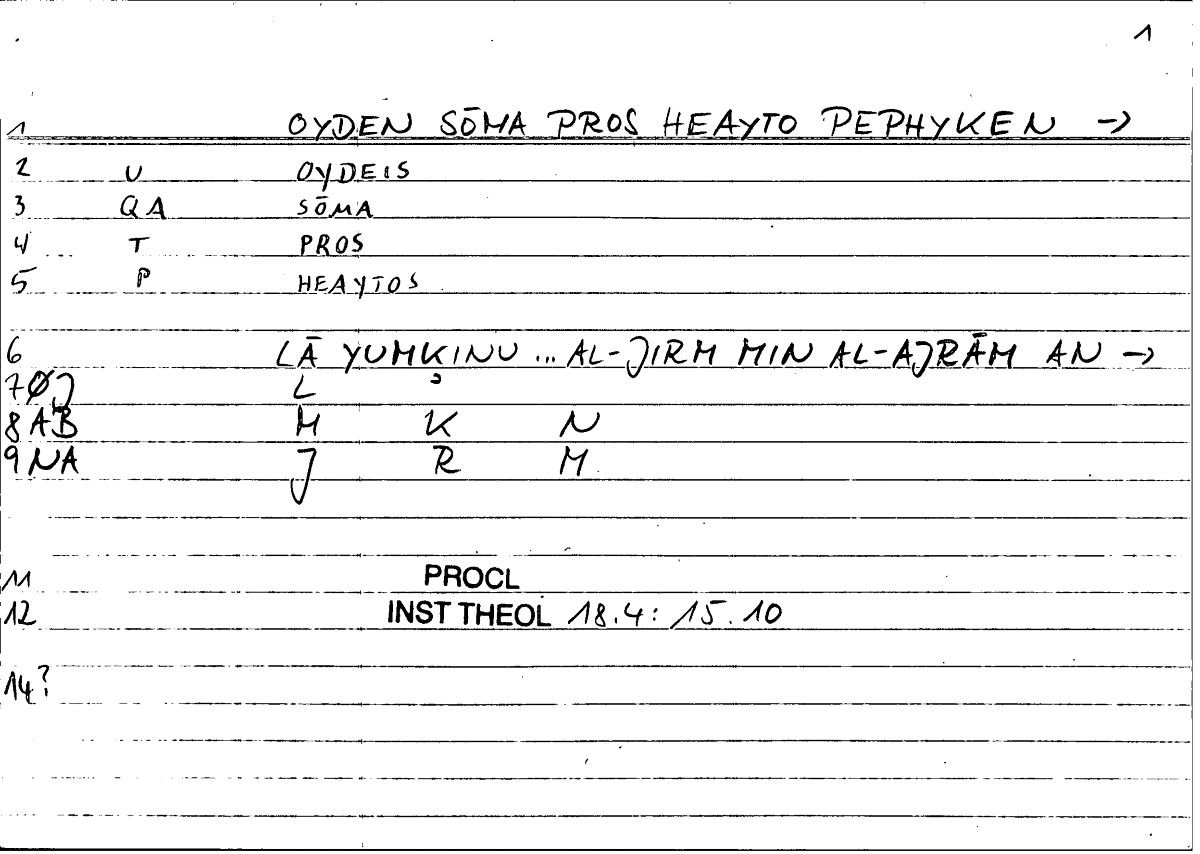 1
1 OYDEN SŌMA PROS HEAYTO PEPHYKEN →
2 U OYDEIS
3 QA SŌMA
4 T PROS
5 P HEAYTOS
6 LĀ YUMKINU ... AL-JIRM MIN AL-AJRĀM AN →
7 ØJ L
8 AB M K N
9 NA J R M
11 PROCL
12 INST THEOL 18.4: 15.10
14?